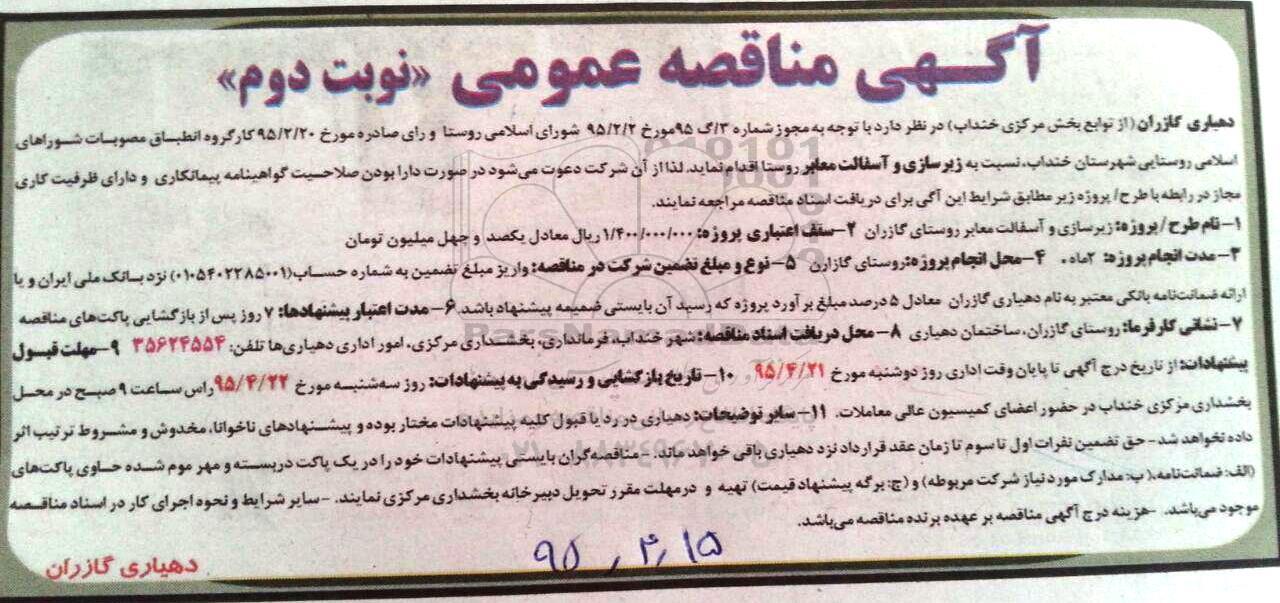 آگهی مناقصه عمومی «نوبت دوم»
دهیاری گازران (از توابع بخش مرکزی خنداب) در نظر دارد با توجه به مجوز شماره ۳/گ ۹۵ مورخ ۹۵/۲/۲ شورای اسلامی روستا و رای صادره مورخ ۹۵/۲/۲۰ کارگروه انطباق مصوبات شوراهای
اسلامی روستایی شهرستان خنداب، نسبت به زیرسازی و آسفالت معابر روستا اقدام نماید. لذا از آن شرکت دعوت می‌شود در صورت دارا بودن صلاحیت گواهینامه پیمانکاری و دارای ظرفیت کاری
مجاز در رابطه با طرح/ پروژه زیر مطابق شرایط این آگی برای دریافت اسناد مناقصه مراجعه نمایند.
۱-نام طرح / پروژه: زیرسازی و آسفالت معابر روستای گازران ۲-سقف اعتباری پروژه: ۱/۴۰۰/۰۰۰/۰۰۰ ریال معادل یکصد و چهل میلیون تومان
۳-مدت انجام پروژه: ۲ماه. ۴-محل انجام پروژه: روستای گازارن ۵-نوع و مبلغ تضمین شرکت در مناقصه: واریز مبلغ تضمین به شماره حساب (۰۱۰۵۴۰۲۲۸۵۰۰۱) نزد بانک ملی ایران و یا
ارائه ضمانت‌نامه بانکی معتبر به نام دهیاری گازران معادل ۵ درصد مبلغ برآورد پروژه که رسید آن بایستی ضمیمه پیشنهاد باشد. ۶-مدت اعتبار پیشنهادها: ۷ روز پس از بازگشایی پاکت‌های مناقصه
۷-نشانی کارفرما: روستای گازران، ساختمان دهیاری ۸-محل دریافت اسناد مناقصه: شهر خنداب، فرمانداری، بخشداری مرکزی، امور اداری دهیاری‌ها تلفن: ۳۵۶۲۴۵۵۴ ۹-مهلت قبول
پیشنهادات: از تاریخ درج آگهی تا پایان وقت اداری روز دوشنبه مورخ ۹۵/۴/۲۱ ۱۰-تاریخ بازگشایی و رسیدگی به پیشنهادات: روز سه‌شنبه مورخ ۹۵/۴/۲۲ راس ساعت ۹ صبح در محل
بخشداری مرکزی خنداب در حضور اعضای کمیسیون عالی معاملات. ۱۱-سایر توضیحات: دهیاری در رد یا قبول کلیه پیشنهادات مختار بوده و پیشنهادهای ناخوانا، مخدوش و مشروط ترتیب اثر
داده نخواهد شد - حق تضمین نفرات اول تا سوم تا زمان عقد قرارداد نزد دهیاری باقی خواهد ماند. -مناقصه‌گران بایستی پیشنهادات خود را در یک پاکت دربسته و مهر موم شده حاوی پاکت‌های
(الف: ضمانت‌نامه، ب: مدارک مورد نیاز شرکت مربوطه) و (ج: برگه پیشنهاد قیمت) تهیه و درمهلت مقرر تحویل دبیرخانه بخشداری مرکزی نمایند. -سایر شرایط و نحوه اجرای کار در اسناد مناقصه
موجود می‌باشد. -هزینه درج آگهی مناقصه بر عهده برنده مناقصه می‌باشد.
۹۵/۴/۱۵
دهیاری گازران